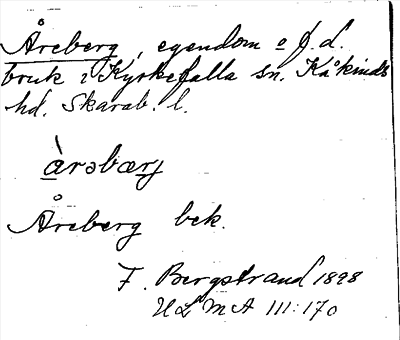 Åreberg, egendom o f. d.
bruk i Kyrkefalla sn. Kåkinds
hd. Skarab. l.
àrəbærj
Åreberg bek.
F. Bergstrand 1898
ULMA III:170